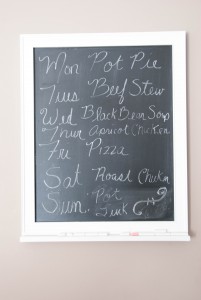 Mon Pot Pie
Tues Beef Stew
Wed Black Bean Soup
Thur Apricot Chicken
Fri Pizza
Sat Roast Chicken
Sun: Pot
Luck